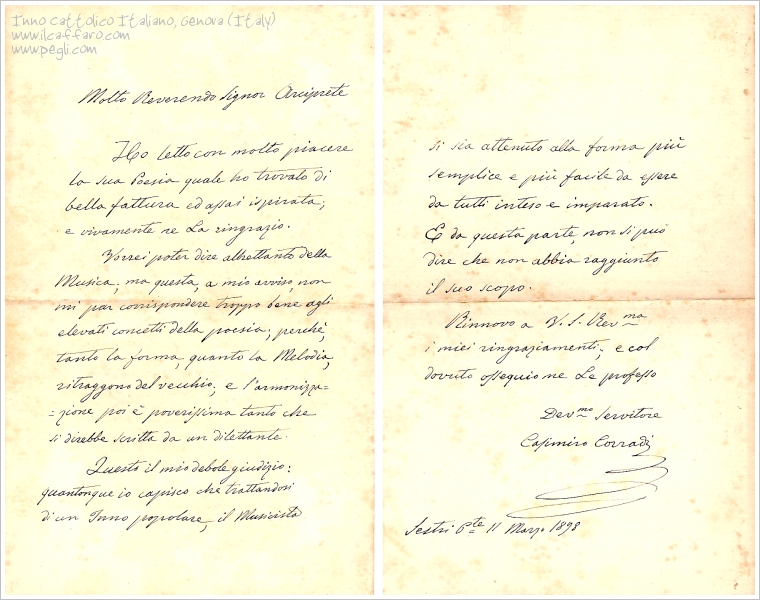 Inno Cattolico Italiano, Genova (Italy)
www.ilcaffaro.com
www.pegli.com
Molto Reverendo Signor Arciprete
Ho letto con molto piacere
la sua Poesia quale ho trovato di
bella fattura ed assai ispirata;
e vivamente ne La ringrazio.
Vorrei poter dire altrettanto della
Musica; ma questa, a mio avviso, non
mi par corrispondere troppo bene agli
elevati concetti della poesia; perchè,
tanto la forma, quanto la Melodia,
ritraggono del vecchio, e l'armonizza=
=zione poi è poverissima tanto che
si direbbe scritta da un dilettante.
Questo il mio debole giudizio:
quantonque io capisco che trattandosi
di un Inno popolare, il Musicista
si sia attenuto alla forma più
semplice e più facile da essere
da tutti inteso e imparato.
E da questa parte, non si può
dire che non abbia raggiunto
il suo scopo.
Rinnovo a V. S. Rev.ma
i miei ringraziamenti; e col
dovuto ossequio me Le professo
Dev.mo Servitore
Casimiro Corradi
Sestri P.te 11 Marzo 1898